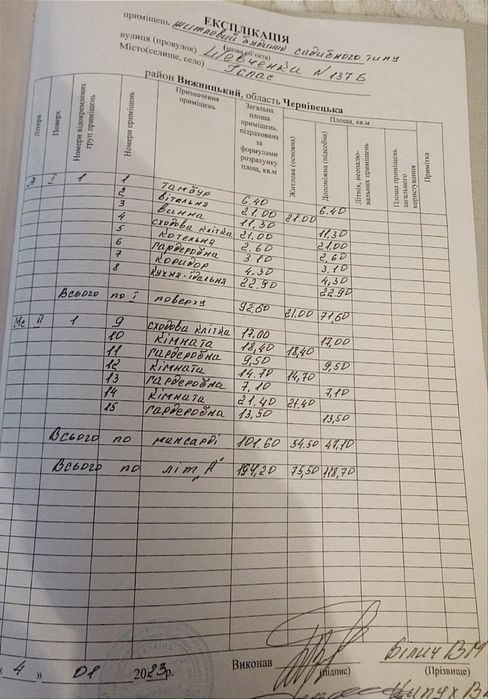 ЕКСПЛІКАЦІЯ
приміщень житловий будинок садибного типу
(назва об'єкта)
вулиця (провулок) Шевченка N 137Б
Місто(селище, село) Іспас
район Вижницький, область Чернівецька
Літера Поверх Номери відокремлених груп приміщень Номери приміщень Призначення приміщень Загальна площа приміщень, підрахована за формулами розрахунку площ, кв.м Площа, кв.м Житлова (основна) Допоміжна (підсобна) Літніх, неопалювальних приміщень Площа приміщень загального користування Примітка
А І 1 1 тамбур 6.40 6.40
2 вітальня 21.00 21.00
3 ванна 11.30 11.30
4 сходова клітка 21.00 21.00
5 котельня 2.60 2.60
6 гардеробна 3.10 3.10
7 коридор 4.30 4.30
8 кухня-їдальня 22.90 22.90
Всього по І поверху 92.60 21.00 71.60
Мс ІІ 1 9 сходова клітка 17.00 17.00
10 кімната 18,40 18,40
11 гардеробна 9,50 9.50
12 кімната 14.70 14,70
13 гардеробна 7,10 7,10
14 кімната 21.40 21.40
15 гардеробна 13,50 13,50
Всього по мансарді 101.60 54.50 47,10
Всього по літ,А 194,20 75,50 118,70
« 4 » 01 2023р.
Виконав (підпис) Білич В М (Прізвище)